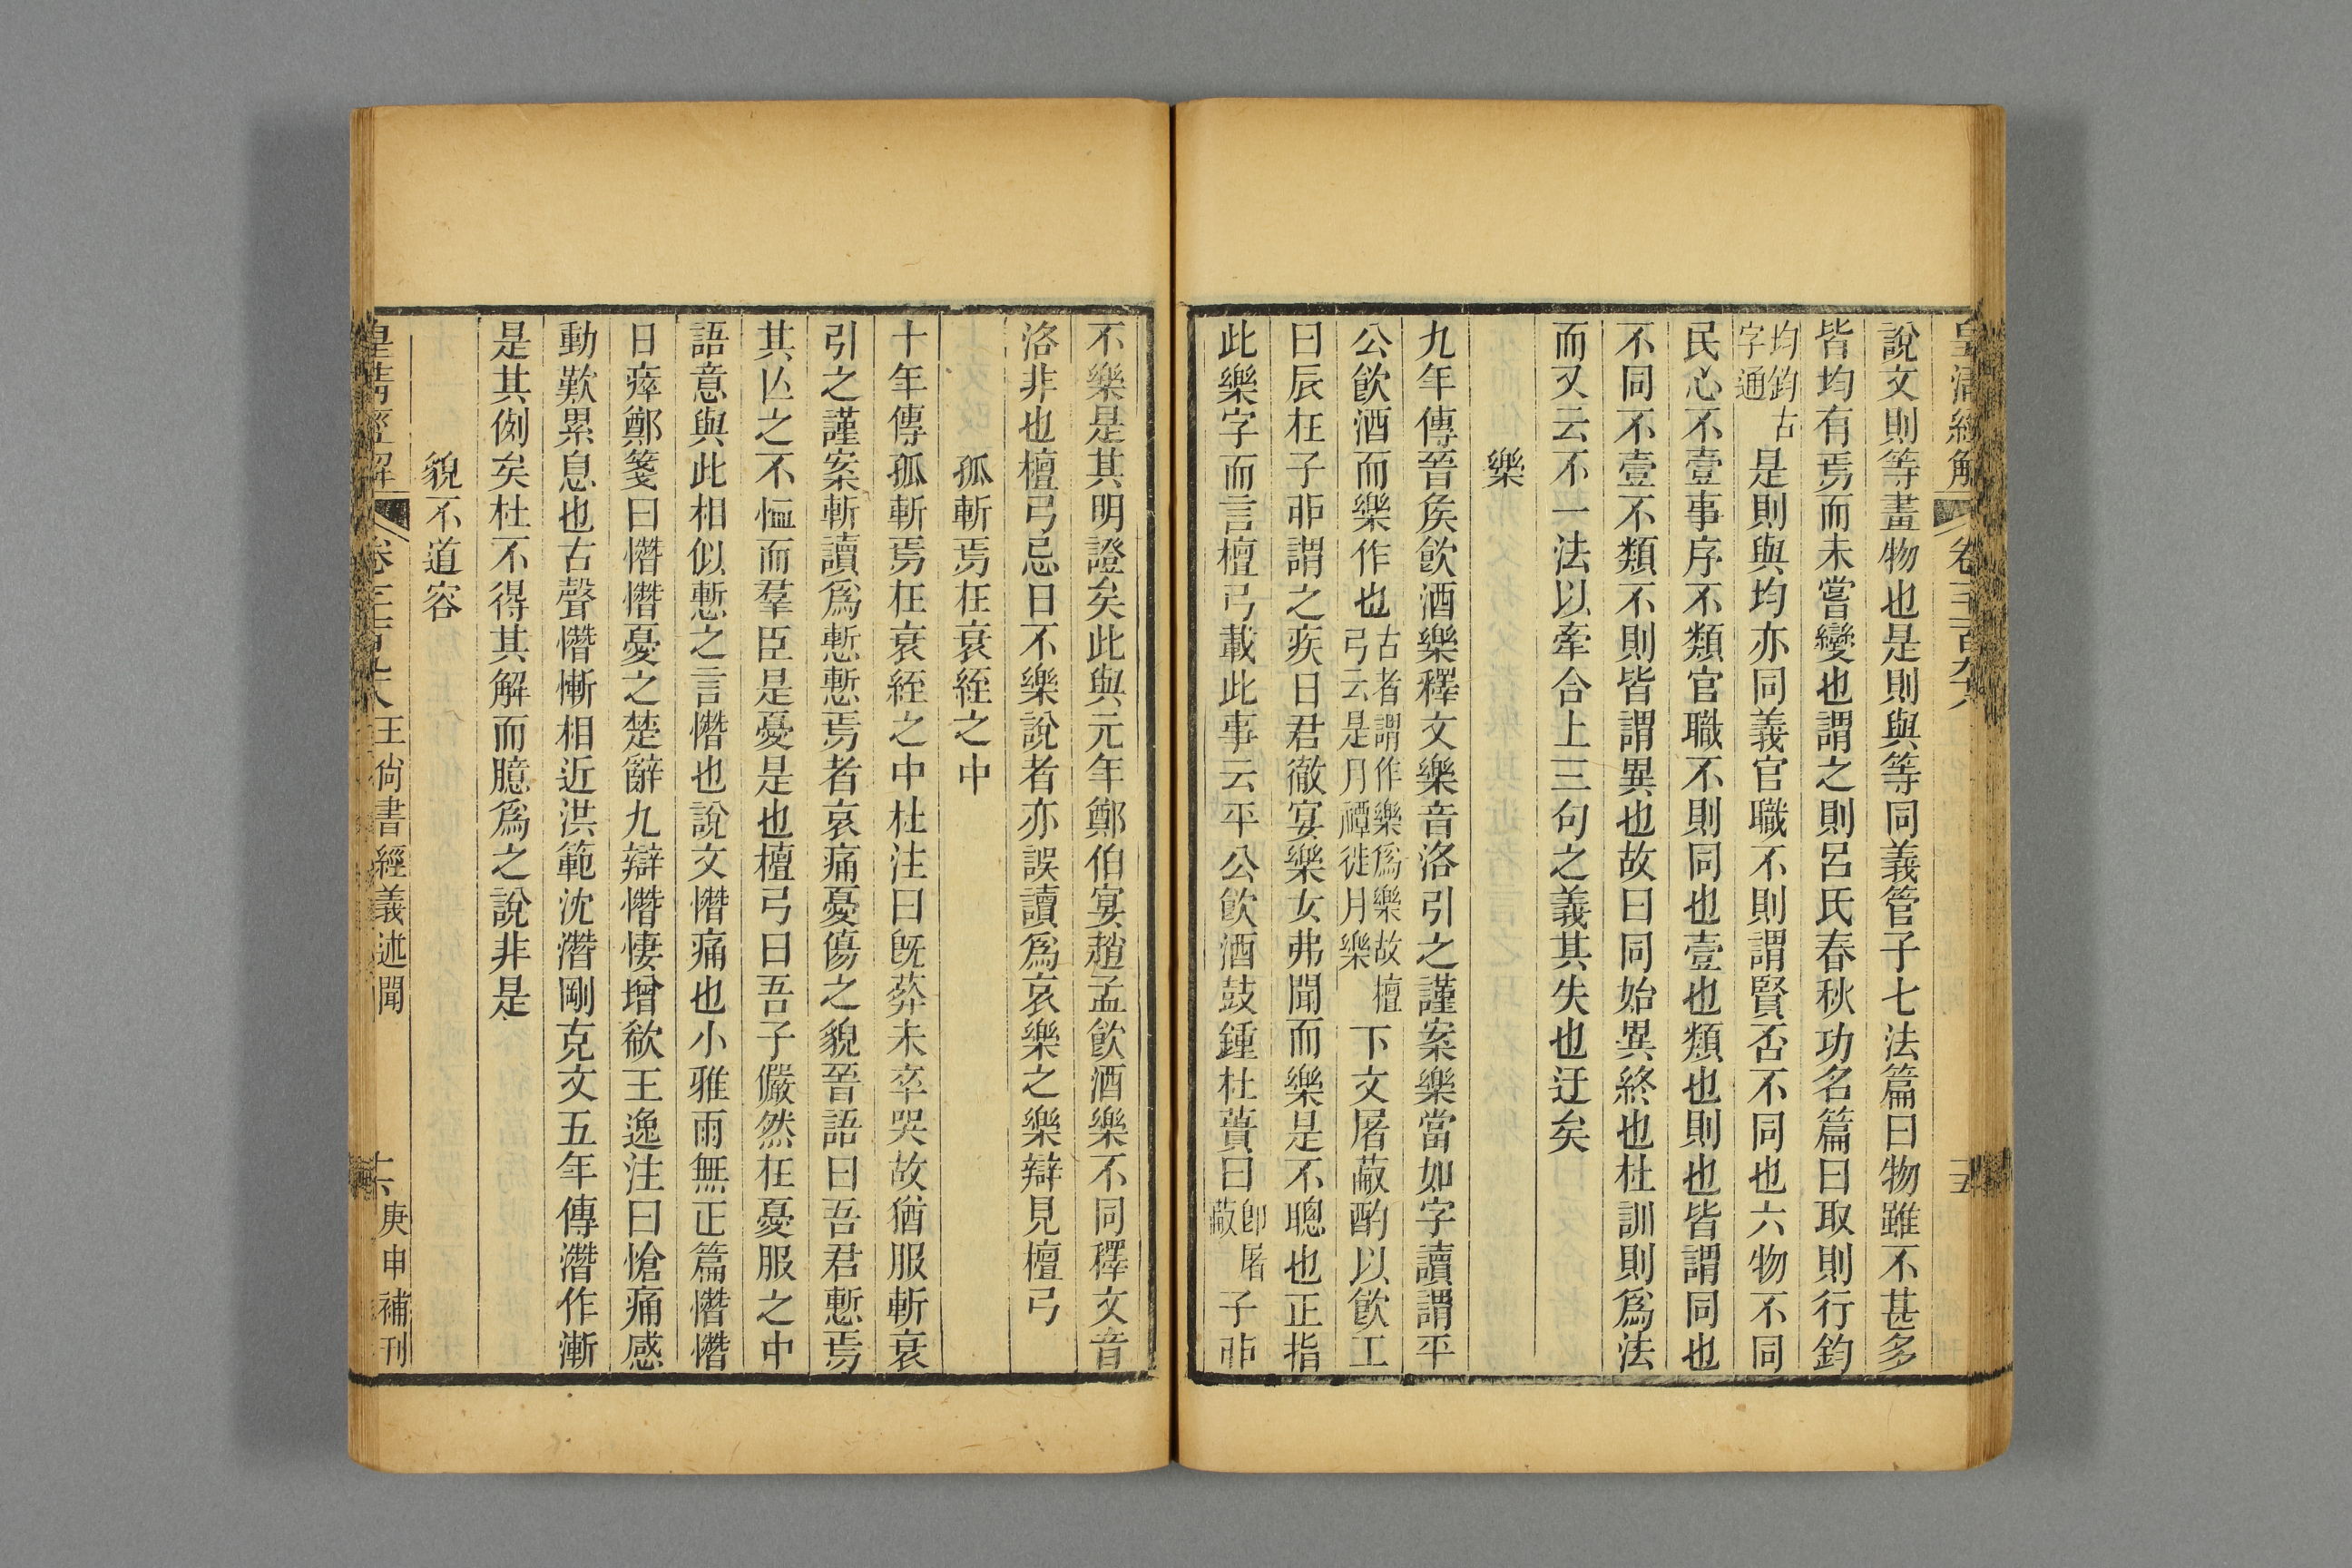 皇清經解 卷一千一百九十八 十五
說文則等畫物也是則與等同義管子七法篇曰物雖不甚多
皆均有焉而未嘗變也謂之則呂氏春秋功名篇曰取則行鈞
均鈞古字通是則與均亦同義官職不則謂賢否不同也六物不同
民心不壹事序不類官職不則同也壹也類也則也皆謂同也
不同不壹不類不則皆謂異也故曰同始異終也杜訓則爲法
而又云不一法以牽合上三句之義其失也迂矣
樂
九年傳晉矦飲酒樂釋文樂音洛引之謹案樂當如字讀謂平
公飲酒而樂作也古者謂作樂爲樂故檀弓云是月禫徙月樂下文屠蒯酌以飲工
曰辰在子丣謂之疾日君徹宴樂女弗聞而樂是不聰也正指
此樂字而言檀弓載此事云平公飲酒鼓鍾杜蕢曰卽屠蒯子丣
不樂是其明證矣此與元年鄭伯宴趙孟飲酒樂不同釋文音
洛非也檀弓忌日不樂說者亦誤讀爲哀樂之樂辯見檀弓
孤斬焉在衰絰之中
十年傳孤斬焉在衰絰之中杜注曰旣葬未卒哭故猶服斬衰
引之謹案斬讀爲慙慙焉者哀痛憂傷之貌晉語曰吾君慙焉
其亾之不恤而羣臣是憂是也檀弓曰吾子儼然在憂服之中
語意與此相似慙之言憯也說文憯痛也小雅雨無正篇憯憯
日瘁鄭箋曰憯憯憂之楚辭九辯憯悽增欷王逸注曰愴痛感
動歎累息也古聲憯慚相近洪範沈潛剛克文五年傳潛作漸
是其例矣杜不得其解而臆爲之說非是
貌不道容
皇清經解 卷一千一百九十八 王尙書經義述聞 十六 庚申補刊